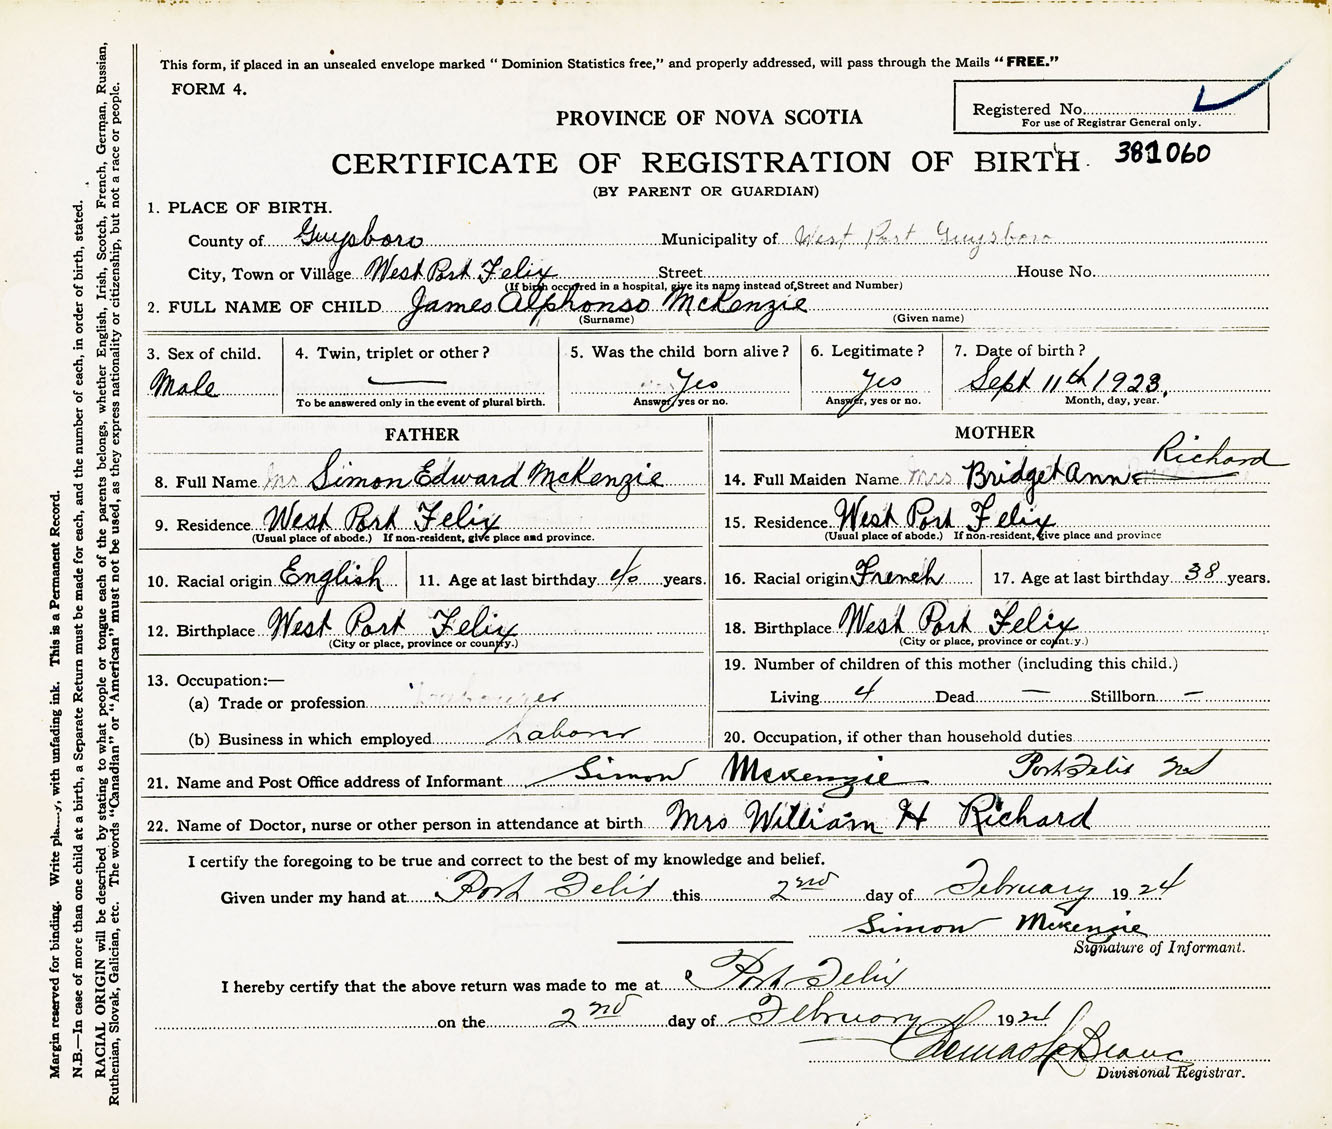 This form, if placed in an unsealed envelope marked " Dominion Statistics free," and properly addressed, will pass through the Mails " FREE."
FORM 4.
Registered No.
For use of Registrar General only.
PROVINCE OF NOVA SCOTIA
CERTIFICATE OF REGISTRATION OF BIRTH 381060
(BY PARENT OR GUARDIAN)
1. PLACE OF BIRTH.
County of Guysboro Municipality of West Port Guysboro
City, Town or Village West Port Felix Street House No.
(If birth occurred in a hospital, give its name instead of Street and Number)
2. FULL NAME OF CHILD James Alphonso McKenzie
(Surname) (Given name)
3. Sex of child. 4. Twin, triplet or other? 5. Was the child born alive? 6. Legitimate? 7. Date of birth?
Male — Yes Yes Sept 11th 1923
To be answered only in the event of plural birth. Answer, yes or no. Answer, yes or no. Month, day, year.
FATHER MOTHER
8. Full Name Mr Simon Edward McKenzie 14. Full Maiden Name Mrs Bridget Ann Richard
9. Residence West Port Felix 15. Residence West Port Felix
(Usual place of abode.) If non-resident, give place and province. (Usual place of abode.) If non-resident, give place and province
10. Racial origin English 11. Age at last birthday 40 years. 16. Racial origin French 17. Age at last birthday 38 years.
12. Birthplace West Port Felix 18. Birthplace West Port Felix
(City or place, province or country.) (City or place, province or country.)
13. Occupation:— 19. Number of children of this mother (including this child.)
(a) Trade or profession Living 4 Dead — Stillborn —
(b) Business in which employed Laborer 20. Occupation, if other than household duties
21. Name and Post Office address of Informant Simon Mckenzie Port Felix NS
22. Name of Doctor, nurse or other person in attendance at birth Mrs William H Richard
I certify the foregoing to be true and correct to the best of my knowledge and belief.
Given under my hand at Port Felix this 2nd day of February 1924
Simon Mckenzie
Signature of Informant.
I hereby certify that the above return was made to me at Port Felix
on the 2nd day of February 1924
Thomas LeBlanc
Divisional Registrar.
Margin reserved for binding. Write with unfading ink. This is a Permanent Record.
N.B.—In case of more than one child at a birth, a Separate Return must be made for each, and the number of each, in order of birth, stated.
RACIAL ORIGIN will be described by stating to what people or tongue each of the parents belongs, whether English, Irish, Scotch, French, German, Russian,
Ruthenian, Slovak, Galician, etc. The words "Canadian" or "American" must not be used, as they express nationality or citizenship, but not a race or people.